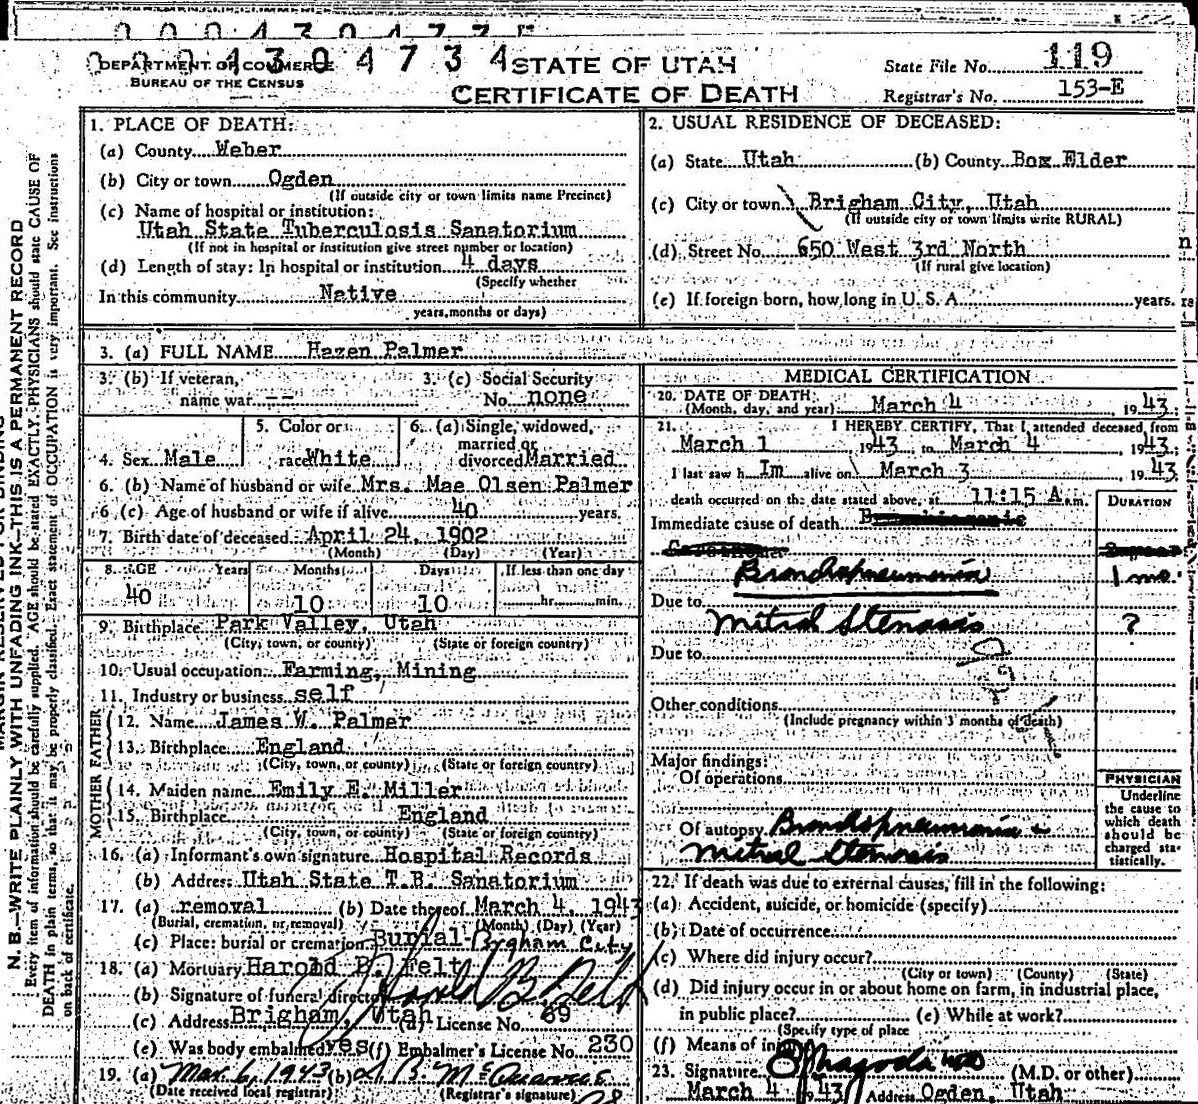 0004304734
DEPARTMENT OF COMMERCE
BUREAU OF THE CENSUS
STATE OF UTAH
CERTIFICATE OF DEATH
State File No. 119
Registrar's No. 153-E
N. B.—WRITE PLAINLY WITH UNFADING INK—THIS IS A PERMANENT RECORD
Every item of information should be carefully supplied. AGE should be stated EXACTLY. PHYSICIANS should state CAUSE OF
DEATH in plain terms, so that it may be properly classified. Exact statement of OCCUPATION is very important. See instructions
on back of certificate.
1. PLACE OF DEATH:
(a) County Weber
(b) City or town Ogden
(If outside city or town limits name Precinct)
(c) Name of hospital or institution:
Utah State Tuberculosis Sanatorium
(If not in hospital or institution give street number or location)
(d) Length of stay: In hospital or institution 4 days
(Specify whether
In this community Native
years, months or days)
2. USUAL RESIDENCE OF DECEASED:
(a) State Utah (b) County Box Elder
(c) City or town Brigham City, Utah
(If outside city or town limits write RURAL)
(d) Street No. 650 West 3rd North
(If rural give location)
(e) If foreign born, how long in U. S. A. years.
3. (a) FULL NAME Hazen Palmer
3. (b) If veteran, name war --
3. (c) Social Security No. none
4. Sex Male
5. Color or race White
6. (a) Single, widowed, married or divorced Married
6. (b) Name of husband or wife Mrs. Mae Olsen Palmer
6 (c) Age of husband or wife if alive 40 years.
7. Birth date of deceased April 24, 1902
(Month) (Day) (Year)
8. AGE Years Months Days If less than one day
40 10 10 hr. min.
9. Birthplace Park Valley, Utah
(City, town, or county) (State or foreign country)
10. Usual occupation Farming, Mining
11. Industry or business self
FATHER
12. Name James W. Palmer
13. Birthplace England
(City, town, or county) (State or foreign country)
MOTHER
14. Maiden name Emily E. Miller
15. Birthplace England
(City, town, or county) (State or foreign country)
16. (a) Informant's own signature Hospital Records
(b) Address Utah State T.B. Sanatorium
17. (a) removal (b) Date thereof March 4, 1943
(Burial, cremation, or removal) (Month) (Day) (Year)
(c) Place: burial or cremation Burial-Brigham City
18. (a) Mortuary Harold B. Felt
(b) Signature of funeral director Harold B. Felt
(c) Address Brigham, Utah (d) License No. 69
(e) Was body embalmed? yes (f) Embalmer's License No. 230
19. (a) Mar 6, 1943 (b)
(Date received local registrar) (Registrar's signature)
MEDICAL CERTIFICATION
20. DATE OF DEATH:
(Month, day, and year) March 4, 1943.
21. I HEREBY CERTIFY, That I attended deceased from
March 1 1943 to March 4, 1943.;
I last saw h Im alive on March 3, 1943
death occurred on the date stated above, at 11:15 A. m.
DURATION
Immediate cause of death
Bronchopneumonia 1 mo.
Due to Mitral Stenosis ?
Due to
Other conditions
(Include pregnancy within 3 months of death)
Major findings:
Of operations
Of autopsy Bronchopneumonia +
Mitral Stenosis
PHYSICIAN
Underline
the cause to
which death
should be
charged sta-
tistically.
22. If death was due to external causes, fill in the following:
(a) Accident, suicide, or homicide (specify)
(b) Date of occurrence
(c) Where did injury occur?
(City or town) (County) (State)
(d) Did injury occur in or about home on farm, in industrial place,
in public place? (e) While at work?
(Specify type of place
(f) Means of in
23. Signature (M.D. or other)
March 4 1943 Address Ogden, Utah